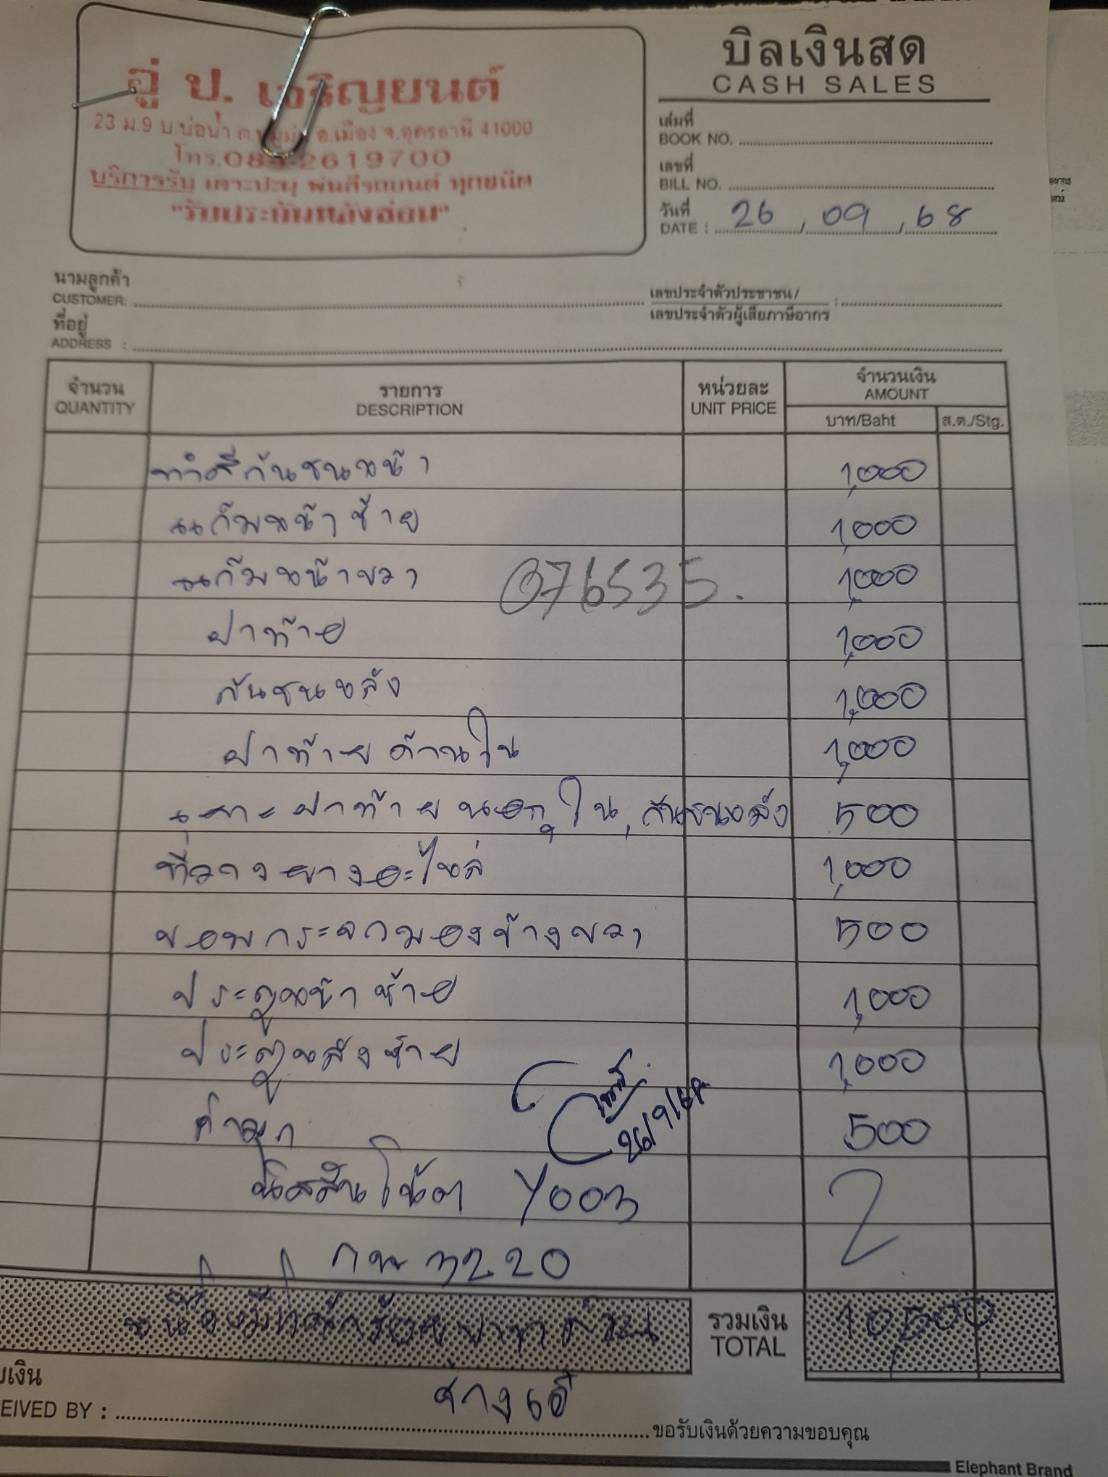 บิลเงินสด
CASH SALES
อู่ ป. เจริญยนต์
23 ม.9 บ.บ่อน้ำ อ.เมือง จ.อุดรธานี 41000
โทร.08 2619700
บริการรับ เคาะปะผุ พ่นสีรถยนต์ ทุกชนิด
"รับประกันหลังซ่อม"
เล่มที่
BOOK NO.
เลขที่
BILL NO.
วันที่
DATE : 26 , 09 , 68
นามลูกค้า
CUSTOMER:
เลขประจำตัวประชาชน/ :
เลขประจำตัวผู้เสียภาษีอากร
ที่อยู่
ADDRESS :
จำนวน รายการ หน่วยละ จำนวนเงิน
QUANTITY DESCRIPTION UNIT PRICE AMOUNT
บาท/Baht ส.ต./Stg.
ทำสีกันชนหน้า 1,000
แก้มหน้าซ้าย 1,000
แก้มหน้าขวา 1,000
076535.
ฝาท้าย 1,000
กันชนหลัง 1,000
ฝาท้ายด้านใน 1,000
เคาะฝาท้ายนอก, ใน, กันชนหลัง 500
ที่วางยางอะไหล่ 1,000
ขอบกระจกมองข้างขวา 500
ประตูหน้าซ้าย 1,000
ประตูหลังซ้าย 1,000
500
26/9/68
นิสสันโน๊ต Y003
กท 3220
หนึ่งหมื่นห้าร้อยบาทถ้วน
รวมเงิน
TOTAL 10,500
บเงิน
EIVED BY :
ช่างเอ๋
ขอรับเงินด้วยความขอบคุณ
Elephant Brand